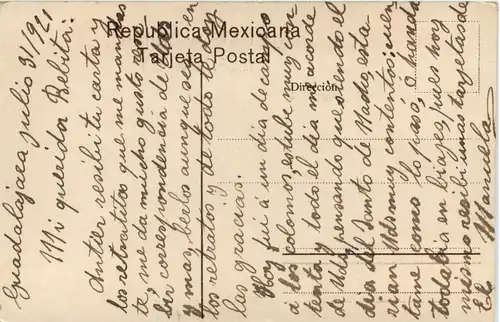 Republica Mexicana
Tarjeta Postal
Dirección
Guadalajara julio 31/921
Mi querida Bebita:
Antier recibí tu carta y
los retratitos que me mandas
te, me da mucho gusto re
bir correspondencia de
y muy berlos aunque sea en
los retratos y de todo te doy
las gracias.
Hoy fui á un dia de campo
á los colomos, estube muy con
tenta y todo el dia me acorde
de Uds, pensando que siendo el
dia del Santo de esta
rian Uds. muy contentas; cuen
tame como lo pasó, ó si anda
todavia en biajes, pues hoy
mismo recibi unas tarjetas de
El. Manuela